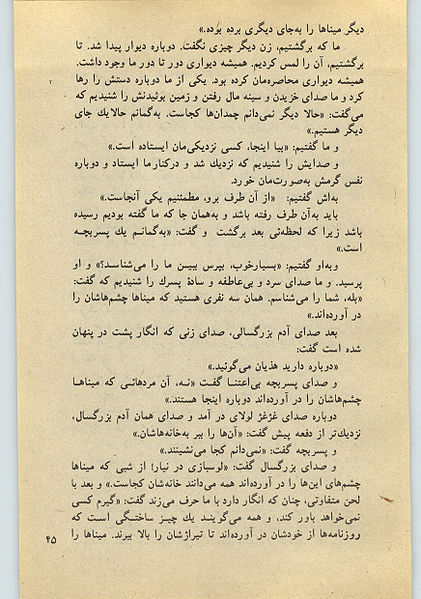 دیگر میناها را به‌جای دیگری برده بوده.»
ما که برگشتیم، زن دیگر چیزی نگفت. دوباره دیوار پیدا شد. تا
برگشتیم، آن را لمس کردیم. همیشه دیواری دور تا دور ما وجود داشت.
همیشه دیواری محاصره‌مان کرده بود. یکی از ما دوباره دستش را رها
کرد و ما صدای خزیدن و سینه مال رفتن و زمین بوئیدنش را شنیدیم که
می‌گفت: «حالا دیگر نمی‌دانم چمدان‌ها کجاست. به‌گمانم حالا یك جای
دیگر هستیم.»
و ما گفتیم: «بیا اینجا، کسی نزدیکی‌مان ایستاده است.»
و صدایش را شنیدیم که نزدیك شد و درکنار ما ایستاد و دوباره
نفس گرمش به‌صورت‌مان خورد.
به‌اش گفتیم: «از آن طرف برو، مطمئنیم یکی آنجاست.»
باید به‌آن طرف رفته باشد و به‌همان جا که ما گفته بودیم رسیده
باشد زیرا که لحظه‌ئی بعد برگشت و گفت: «به‌گمانم یك پسربچه
است.»
و به‌او گفتیم: «بسیارخوب، بپرس ببین ما را می‌شناسد؟» و او
پرسید. و ما صدای سرد و بی‌عاطفه و سادهٔ پسرك را شنیدیم که گفت:
«بله، شما را می‌شناسم. همان سه نفری هستید که میناها چشم‌هاشان را
در آورده‌اند.»
بعد صدای آدم بزرگسالی، صدای زنی که انگار پشت در پنهان
شده است گفت:
«دوباره دارید هذیان می‌گوئید.»
و صدای پسربچه بی‌اعتنا گفت «نه، آن مردهائی که میناها
چشم‌هاشان را در آورده‌اند دوباره اینجا هستند.»
دوباره صدای غژغژ لولای در آمد و صدای همان آدم بزرگسال،
نزدیك‌تر از دفعه پیش گفت: «آن‌ها را ببر به‌خانه‌هاشان.»
و پسربچه گفت: «نمی‌دانم کجا می‌نشینند.»
و صدای بزرگسال گفت: «لوسبازی در نیار! از شبی که میناها
چشم‌های این‌ها را در آورده‌اند همه می‌دانند خانه‌شان کجاست.» و بعد با
لحن متفاوتی، چنان که انگار دارد با ما حرف می‌زند گفت: «گیرم کسی
نمی‌خواهد باور کند، و همه می‌گویند یك چیز ساختگی است که
روزنامه‌ها از خودشان در آورده‌اند تا تیراژشان را بالا ببرند. میناها را
۴۵